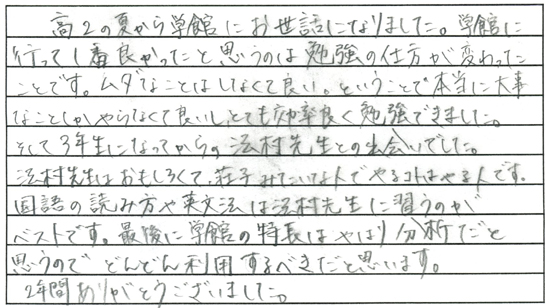 高2の夏から学館にお世話になりました。学館に
行って1番良かったと思うのは勉強の仕方が変わった
ことです。ムダなことはしなくて良い。ということで本当に大事
なことしかやらなくて良いしとても効率良く勉強できました。
そして3年生になってからの法村先生との出会いでした。
法村先生はおもしろくて、荘子みたいな人でやるコトはやる人です。
国語の読み方や英文法は法村先生に習うのが
ベストです。最後に学館の特長はやはり分析だと
思うのでどんどん利用するべきだと思います。
2年間ありがとうございました。